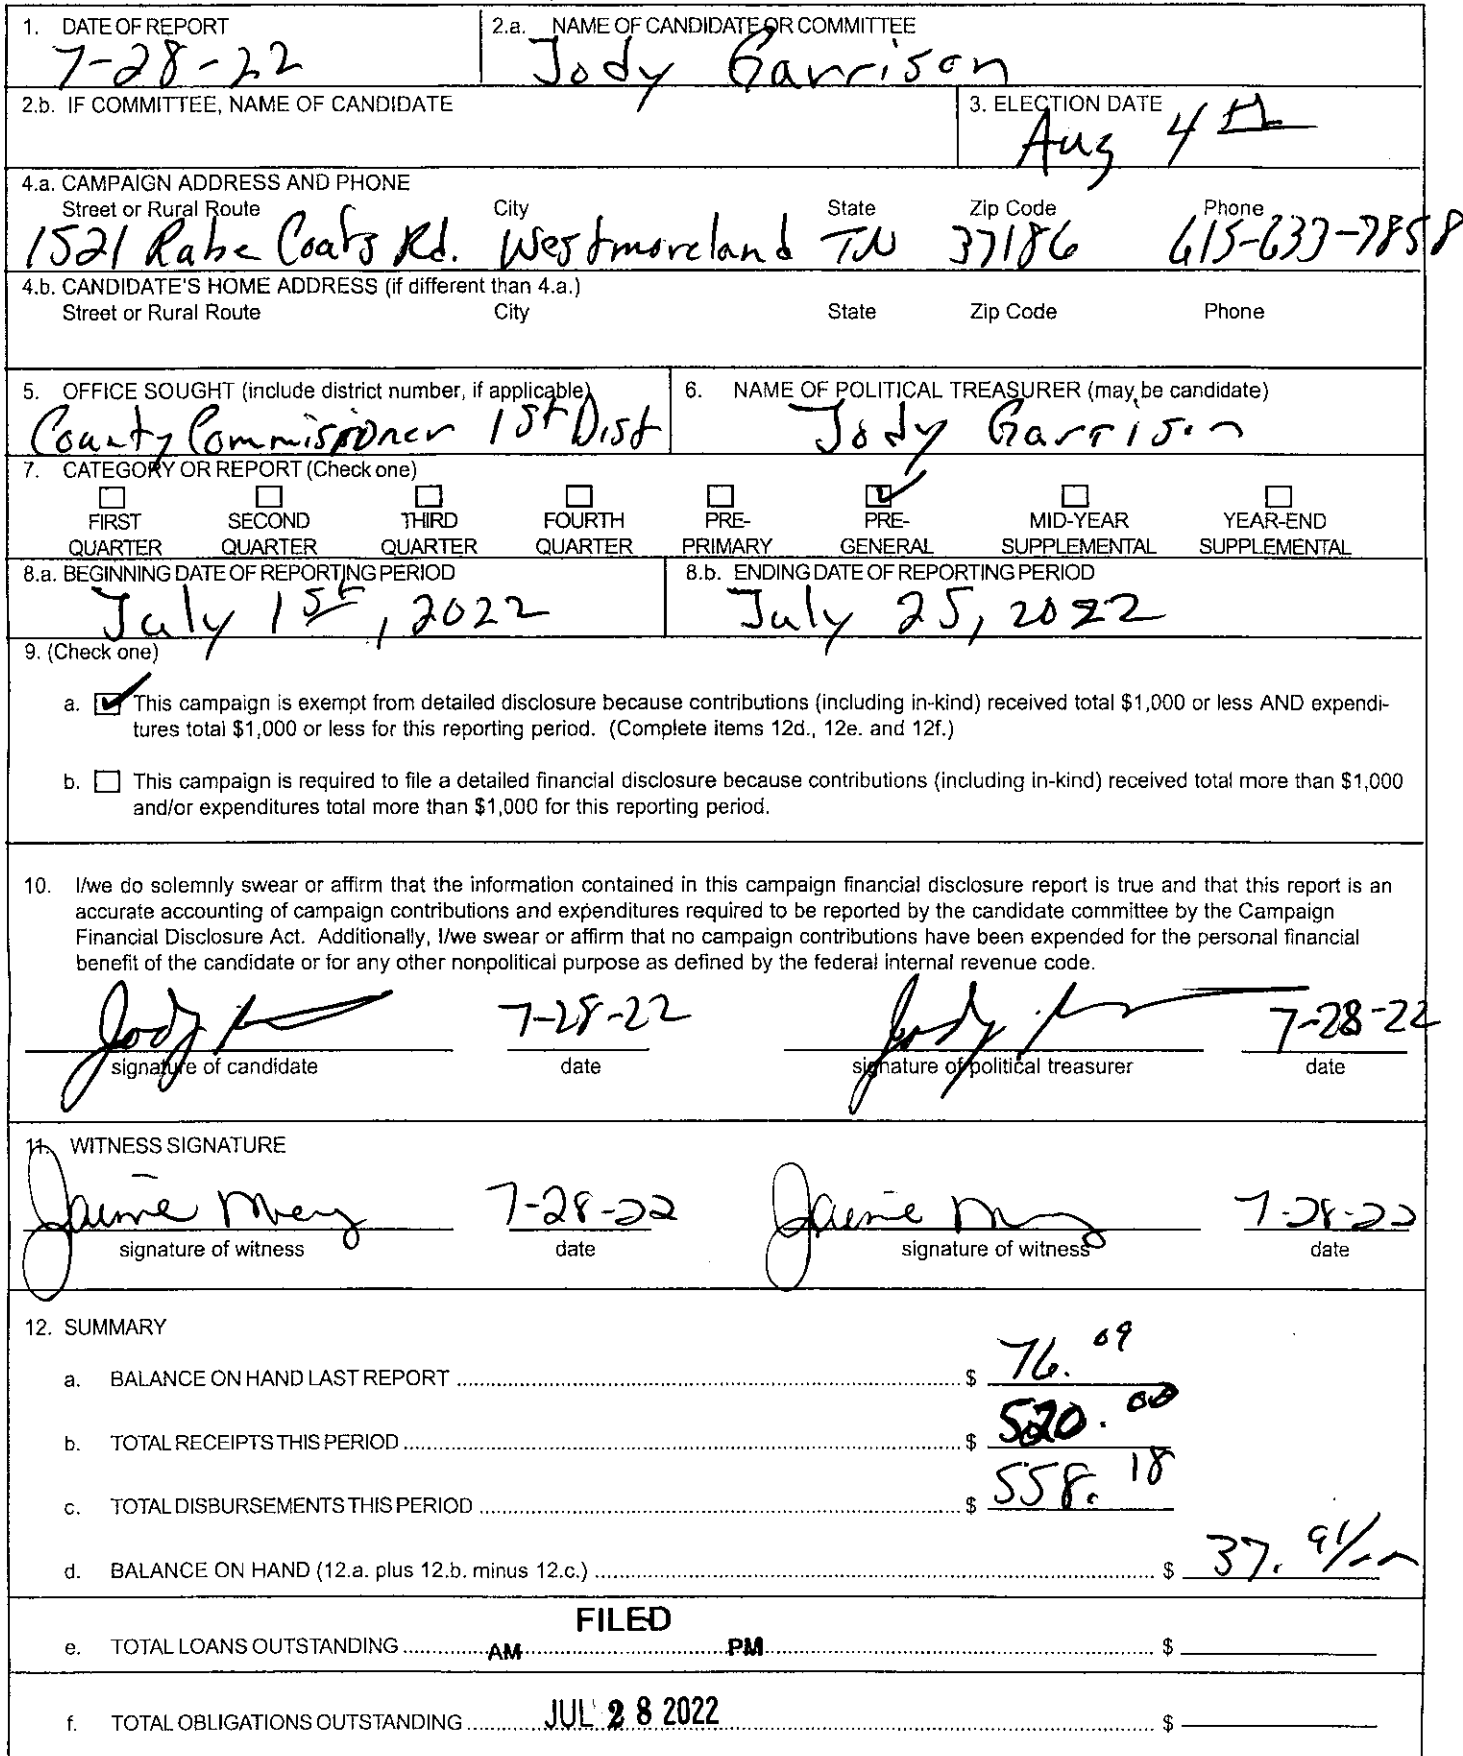 1. DATE OF REPORT
7-28-22
2.a. NAME OF CANDIDATE OR COMMITTEE
Jody Garrison
2.b. IF COMMITTEE, NAME OF CANDIDATE
3. ELECTION DATE
Aug 4th
4.a. CAMPAIGN ADDRESS AND PHONE
Street or Rural Route City State Zip Code Phone
1521 Rabe Coats Rd. Westmoreland TN 37186 615-633-7858
4.b. CANDIDATE'S HOME ADDRESS (if different than 4.a.)
Street or Rural Route City State Zip Code Phone
5. OFFICE SOUGHT (include district number, if applicable)
County Commissioner 1st Dist
6. NAME OF POLITICAL TREASURER (may be candidate)
Jody Garrison
7. CATEGORY OR REPORT (Check one)
FIRST QUARTER
SECOND QUARTER
THIRD QUARTER
FOURTH QUARTER
PRE-PRIMARY
PRE-GENERAL
MID-YEAR SUPPLEMENTAL
YEAR-END SUPPLEMENTAL
8.a. BEGINNING DATE OF REPORTING PERIOD
July 1st, 2022
8.b. ENDING DATE OF REPORTING PERIOD
July 25, 2022
9. (Check one)
a. This campaign is exempt from detailed disclosure because contributions (including in-kind) received total $1,000 or less AND expendi-
tures total $1,000 or less for this reporting period. (Complete items 12d., 12e. and 12f.)
b. This campaign is required to file a detailed financial disclosure because contributions (including in-kind) received total more than $1,000
and/or expenditures total more than $1,000 for this reporting period.
10. I/we do solemnly swear or affirm that the information contained in this campaign financial disclosure report is true and that this report is an
accurate accounting of campaign contributions and expenditures required to be reported by the candidate committee by the Campaign
Financial Disclosure Act. Additionally, I/we swear or affirm that no campaign contributions have been expended for the personal financial
benefit of the candidate or for any other nonpolitical purpose as defined by the federal internal revenue code.
Jody 7-28-22 Jody 7-28-22
signature of candidate date signature of political treasurer date
11. WITNESS SIGNATURE
Jaime 7-28-22 Jaime 7-28-22
signature of witness date signature of witness date
12. SUMMARY
a. BALANCE ON HAND LAST REPORT $ 76.09
b. TOTAL RECEIPTS THIS PERIOD $ 520.00
c. TOTAL DISBURSEMENTS THIS PERIOD $ 558.18
d. BALANCE ON HAND (12.a. plus 12.b. minus 12.c.) $ 37.91/--
FILED
e. TOTAL LOANS OUTSTANDING AM PM $
f. TOTAL OBLIGATIONS OUTSTANDING JUL 28 2022 $